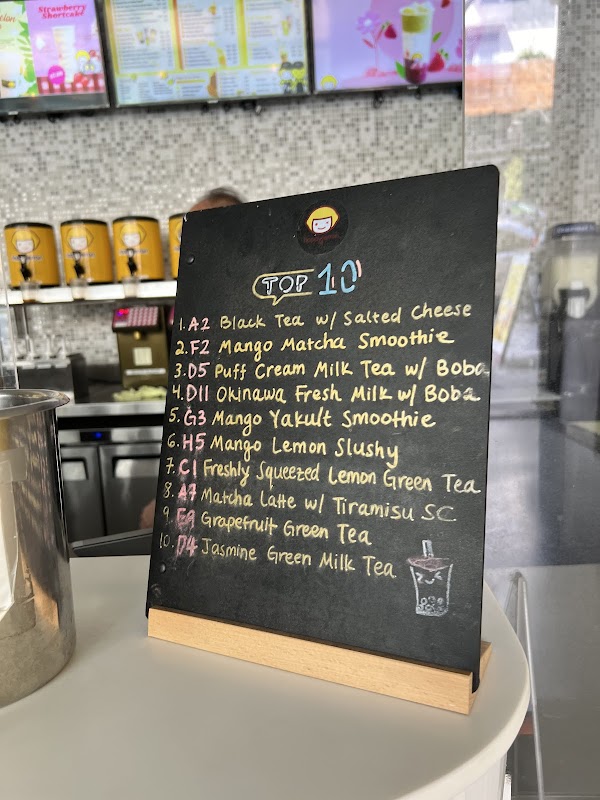 Strawberry
Shortcake
TOP 10
1. A2 Black Tea w/ Salted Cheese
2. F2 Mango Matcha Smoothie
3. D5 Puff Cream Milk Tea w/ Boba
4. D11 Okinawa Fresh Milk w/ Boba
5. G3 Mango Yakult Smoothie
6. H5 Mango Lemon Slushy
7. C1 Freshly Squeezed Lemon Green Tea
8. A7 Matcha Latte w/ Tiramisu SC
9. E9 Grapefruit Green Tea
10. D4 Jasmine Green Milk Tea